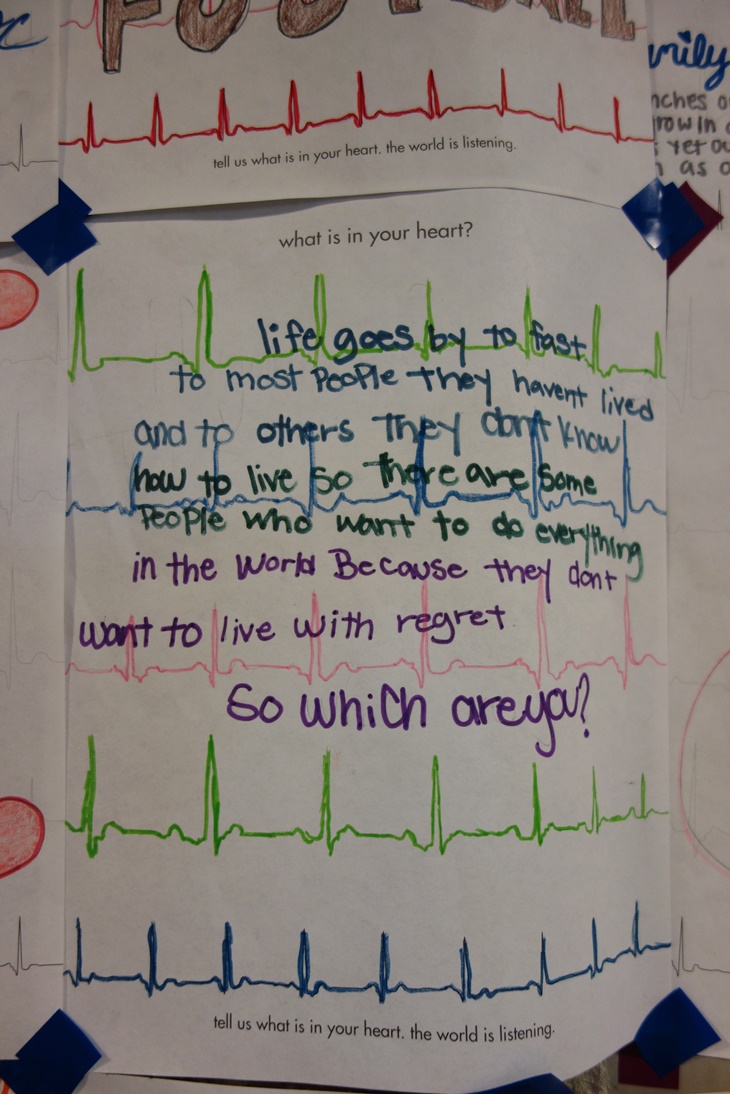 FOOTBALL
tell us what is in your heart. the world is listening.
what is in your heart?
life goes by to fast
to most People they havent lived
and to others They don't know
how to live so there are some
People who want to do everything
in the world Because they dont
want to live with regret
So which are you?
tell us what is in your heart. the world is listening.